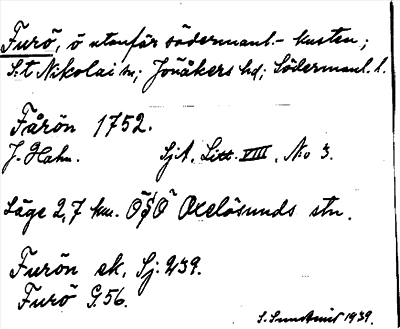 Furö, ö utanför södermanl.- kusten;
S:t Nikolai sn; Jönåkers hd; Södermanl. l.
Fårön 1752.
J. Hahn. SjA, Litt. VIII, No 3.
Läge 2,7 km. ÖSÖ Oxelösunds stn.
Furön ek, Sj. 239.
Furö G. 56.
S. Sundqvist 1939.